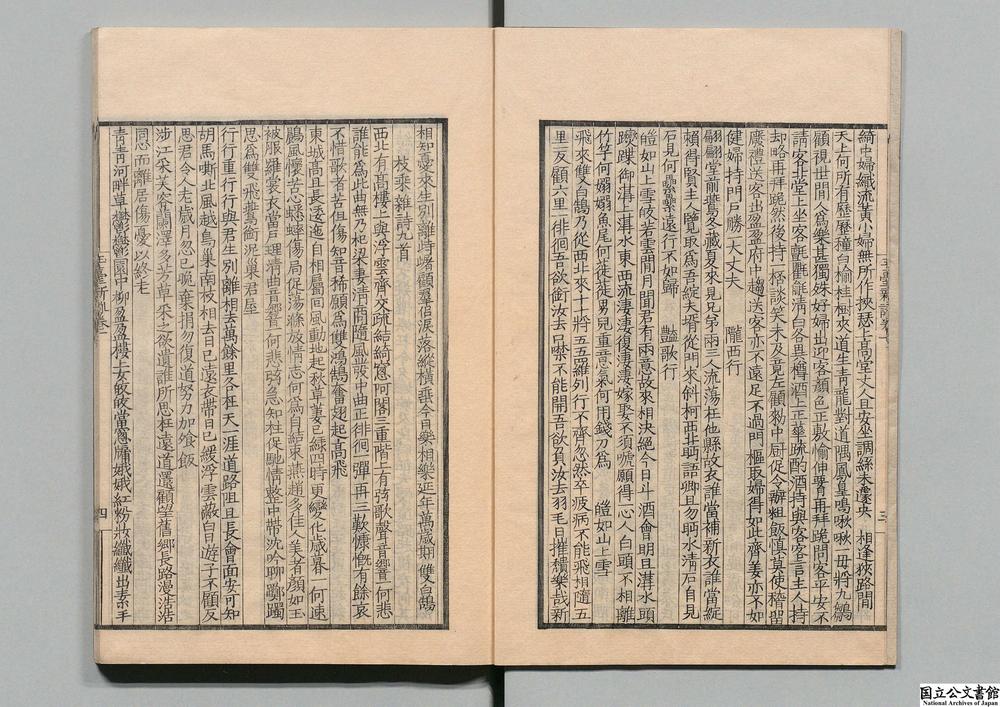 綺中婦織流黃小婦無所作挾瑟上高堂丈人且安坐調絲未遽央　相逢狹路間
天上何所有歷歷種白榆桂樹夾道生青龍對道隅鳳皇鳴啾啾一毋將九鶵
顧視世間人為樂甚獨殊好婦出迎客顏色正敷愉伸𦝫再拜跪問客平安不
請客北堂上坐客氈氍毹清白各異樽酒上正華疏酌酒持與客客言主人持
却略再拜跪然後持一杯談笑未及竟左顧勑中厨促令辦粗飯慎莫使稽留
廢禮送客出盈盈府中趨送客亦不遠足不過門樞取婦得如此齊姜亦不如
健婦持門戶勝一大丈夫　隴西行
翩翩堂前鷰冬藏夏來見兄弟兩三人流蕩在他縣故衣誰當補新衣誰當綻
賴得賢主人覽取為吾綻夫壻從門來斜柯西北眄語卿且勿眄水清石自見
石見何纍纍遠行不如歸　豔歌行
皚如山上雪皎若雲間月聞君有兩意故來相決絕今日斗酒會明旦溝水頭
躞蹀御溝上溝水東西流淒淒復淒淒嫁娶不須嗁願得一心人白頭不相離
竹竿何嫋嫋魚尾何簁簁男兒重意氣何用錢刀為　皚如山上雪
飛來雙白鵠乃從西北來十十將五五羅列行不齊忽然卒疲病不能飛相隨五
里一反顧六里一徘徊吾欲銜汝去口噤不能開吾欲負汝去羽毛日摧穨樂哉新
相知憂來生別離峙嶀顧羣侶淚落縱橫垂今日樂相樂延年萬歲期　雙白鵠
枚乘雜詩九首
西北有高樓上與浮雲齊交疏結綺窻阿閣三重階上有弦歌聲音響一何悲
誰能為此曲無乃杞梁妻清商隨風發中曲正徘徊一彈再三歎慷慨有餘哀
不惜歌者苦但傷知音稀願為雙鴻鵠奮翅起高飛
東城高且長逶迤自相屬回風動地起秋草萋已綠四時更變化歲暮一何速
鷐風懷苦心蟋蟀傷局促蕩滌放情志何為自結束燕趙多佳人美者顏如玉
被服羅裳衣當戶理清曲音響一何悲弦急知柱促馳情整中帶沈吟聊躑躅
思為雙飛鷰銜泥巢君屋
行行重行行與君生別離相去萬餘里各在天一涯道路阻且長會面安可知
胡馬嘶北風越鳥巢南枝相去日已遠衣帶日已緩浮雲蔽白日遊子不顧反
思君令人老歲月忽已晚棄捐勿復道努力加飡飯
涉江采芙容蘭澤多芳草采之欲遺誰所思在遠道還顧望舊鄉長路漫浩浩
同心而離居傷憂以終老
青青河畔草鬱鬱園中柳盈盈樓上女皎皎當窻牖娥娥紅粉妝纖纖出素手
玉臺新詠卷一
三
四
国立公文書館
National Archives of Japan